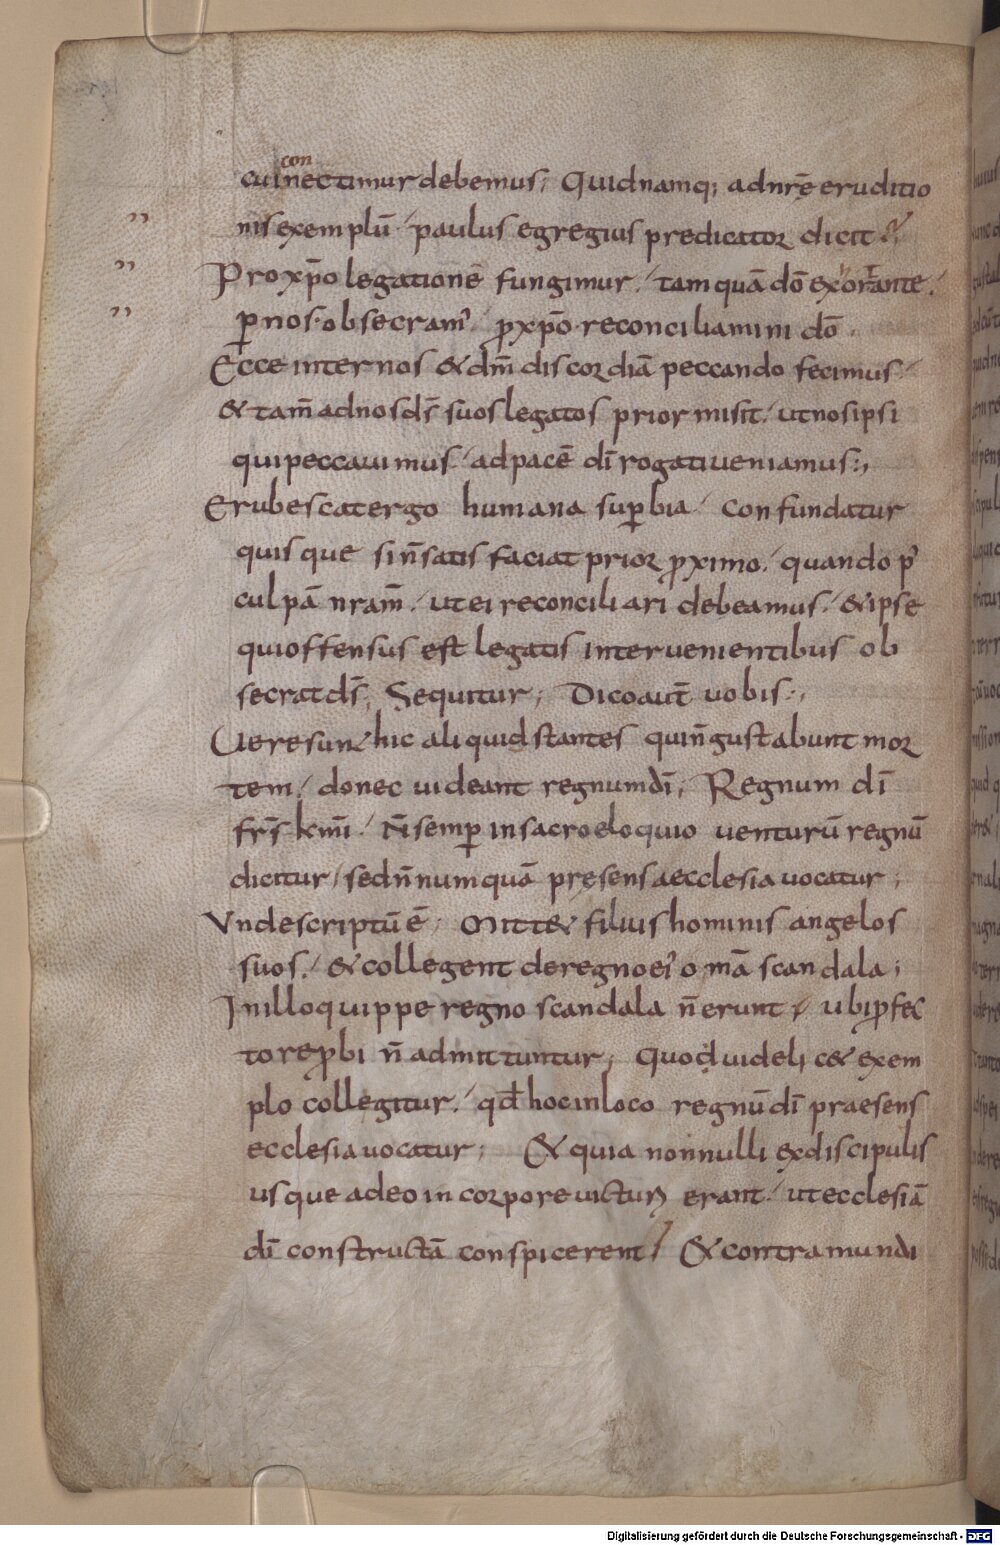 con
cui nectimur debemus; Quid namq; ad nr̄ę eruditio
nis exemplū / paulus egregius predicator dicit
Pro xp̄o legationē fungimur / tamquā dō exorante /
ꝑ nos obsecram' / ꝓ xp̄o reconciliamini dō .
Ecce inter nos & dm̄ discordiā peccando fecimus /
& tam̄ ad nos ds̄ suos legatos prior misit / ut nos ipsi
qui peccauimus / ad pacē dī rogati ueniamus;,
Erubescat ergo humana suꝑbia / confundatur
quisque si n̄ satisfaciat prior ꝓximo / quando p'
culpā nram̄ / ut ei reconciliari debeamus / & ipse
qui offensus est legatis interuenientibus ob
secrat ds̄; Sequitur; Dico aut̄ uobis;,
Uere sun& hic aliquid stantes qui n̄ gustabunt mor
tem / donec uideant regnum dī; Regnum dī
fr̄s km̄i / n̄ semꝑ in sacro eloquio uenturū regnū
dicitur / sed n̄numquā pręsens aecclesia uocatur;
Unde scriptū ē; Mitt& filius hominis angelos
suos / & collegent de regno ei' omā scandala;
In illo quippe regno scandala n̄ erunt / ubi ꝑfec
to reꝓbi n̄ admittuntur; Quod uidelic& exem
plo collegitur / qd̄ hoc in loco regnū dī praesens
ecclesia uocatur; & quia nonnulli ex discipulis
usque adeo in corpore uicturi erant / ut ecclesiā
dī constructā conspicerent / & contra mundi
Digitalisierung gefördert durch die Deutsche Forschungsgemeinschaft - DFG